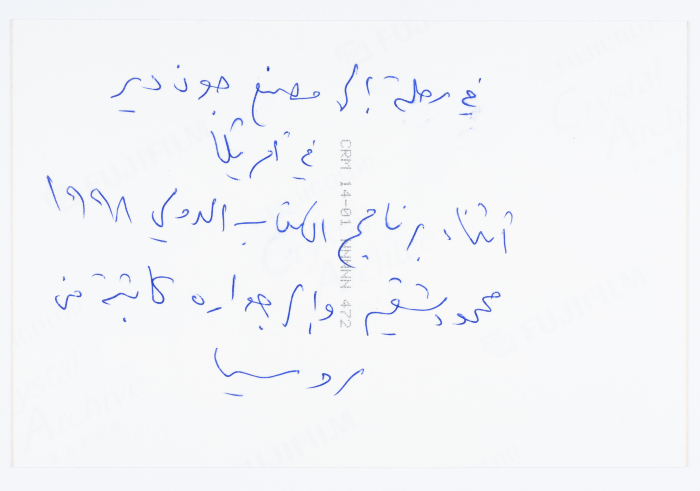 في رحلة إلى مصنع جون دير
في أمريكا
أثناء برنامج الكتاب الدولي ١٩٩٨
محمود شقير وإلى جواره كاتبة من
روسيا
CRM 14-01 NNNNN 472
FUJIFILM
Crystal
Archive